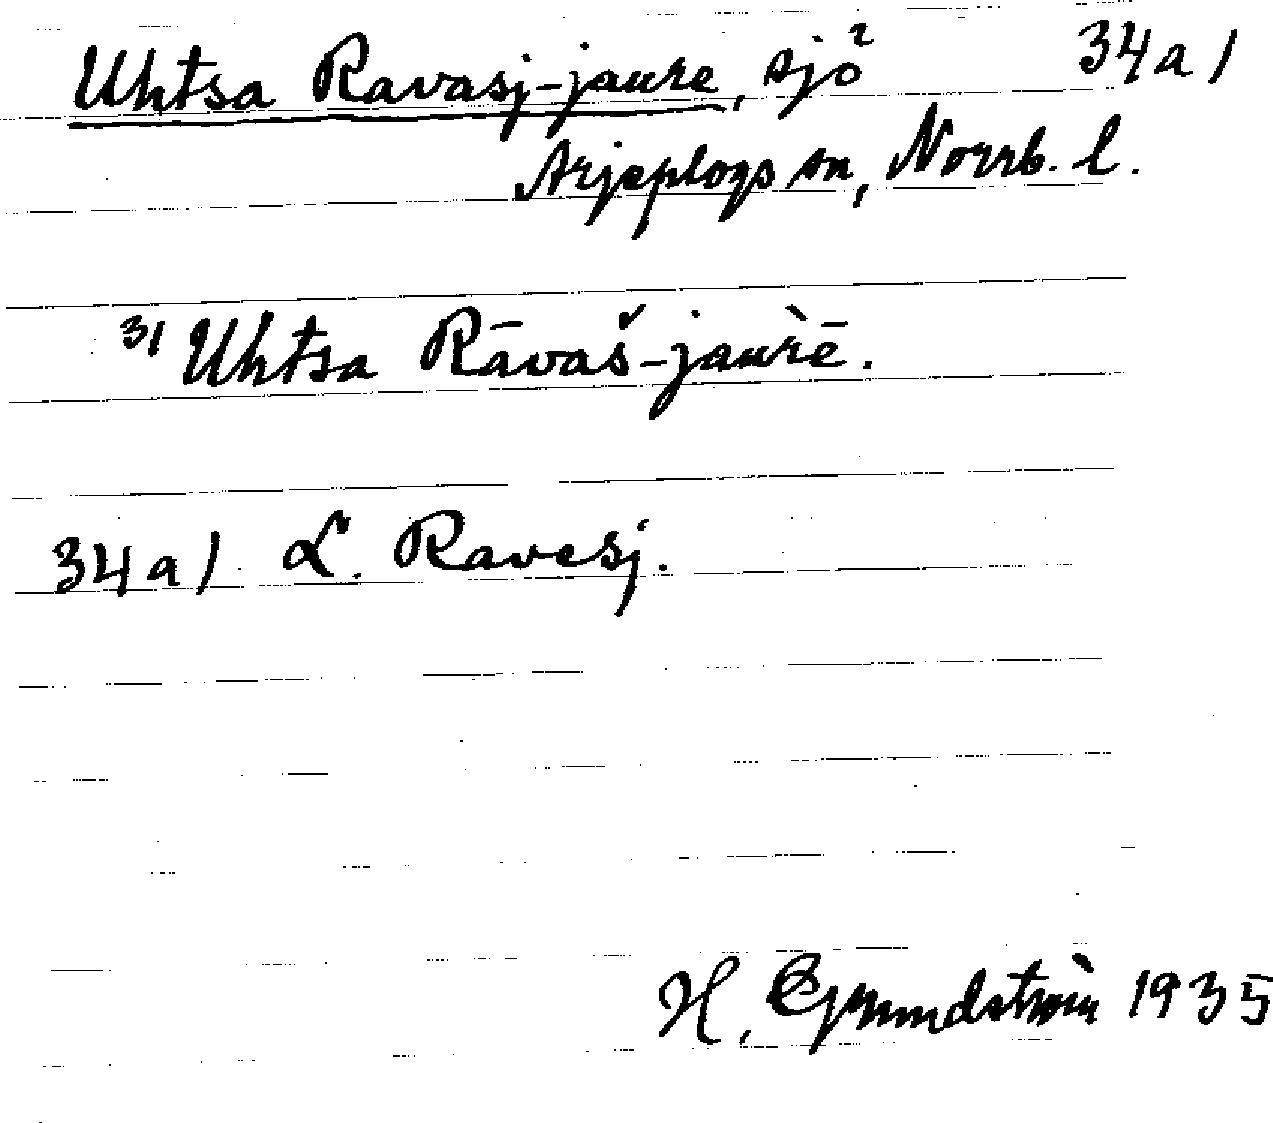 Uhtsa Ravasj-jaure, sjö 34a/
Arjeplogs sn, Norrb. l.
31 Uhtsa Rāvaš-jaùrē.
34a/ L. Ravesj.
H. Grundström 1935